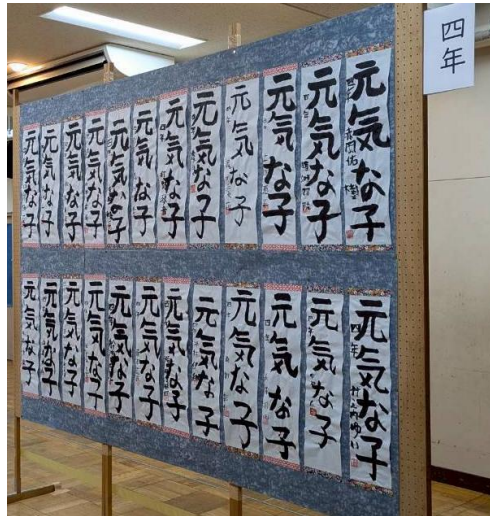 四年
元気な子
元気な子
元気な子
元気な子
元気な子
元気な子
元気な子
元気な子
元気な子
元気な子
元気な子
元気な子
元気な子
四年
元気な子
元気な子
四年
元気な子
元気な子
元気な子
元気な子
元気な子
元気な子
元気な子
元気な子
元気な子